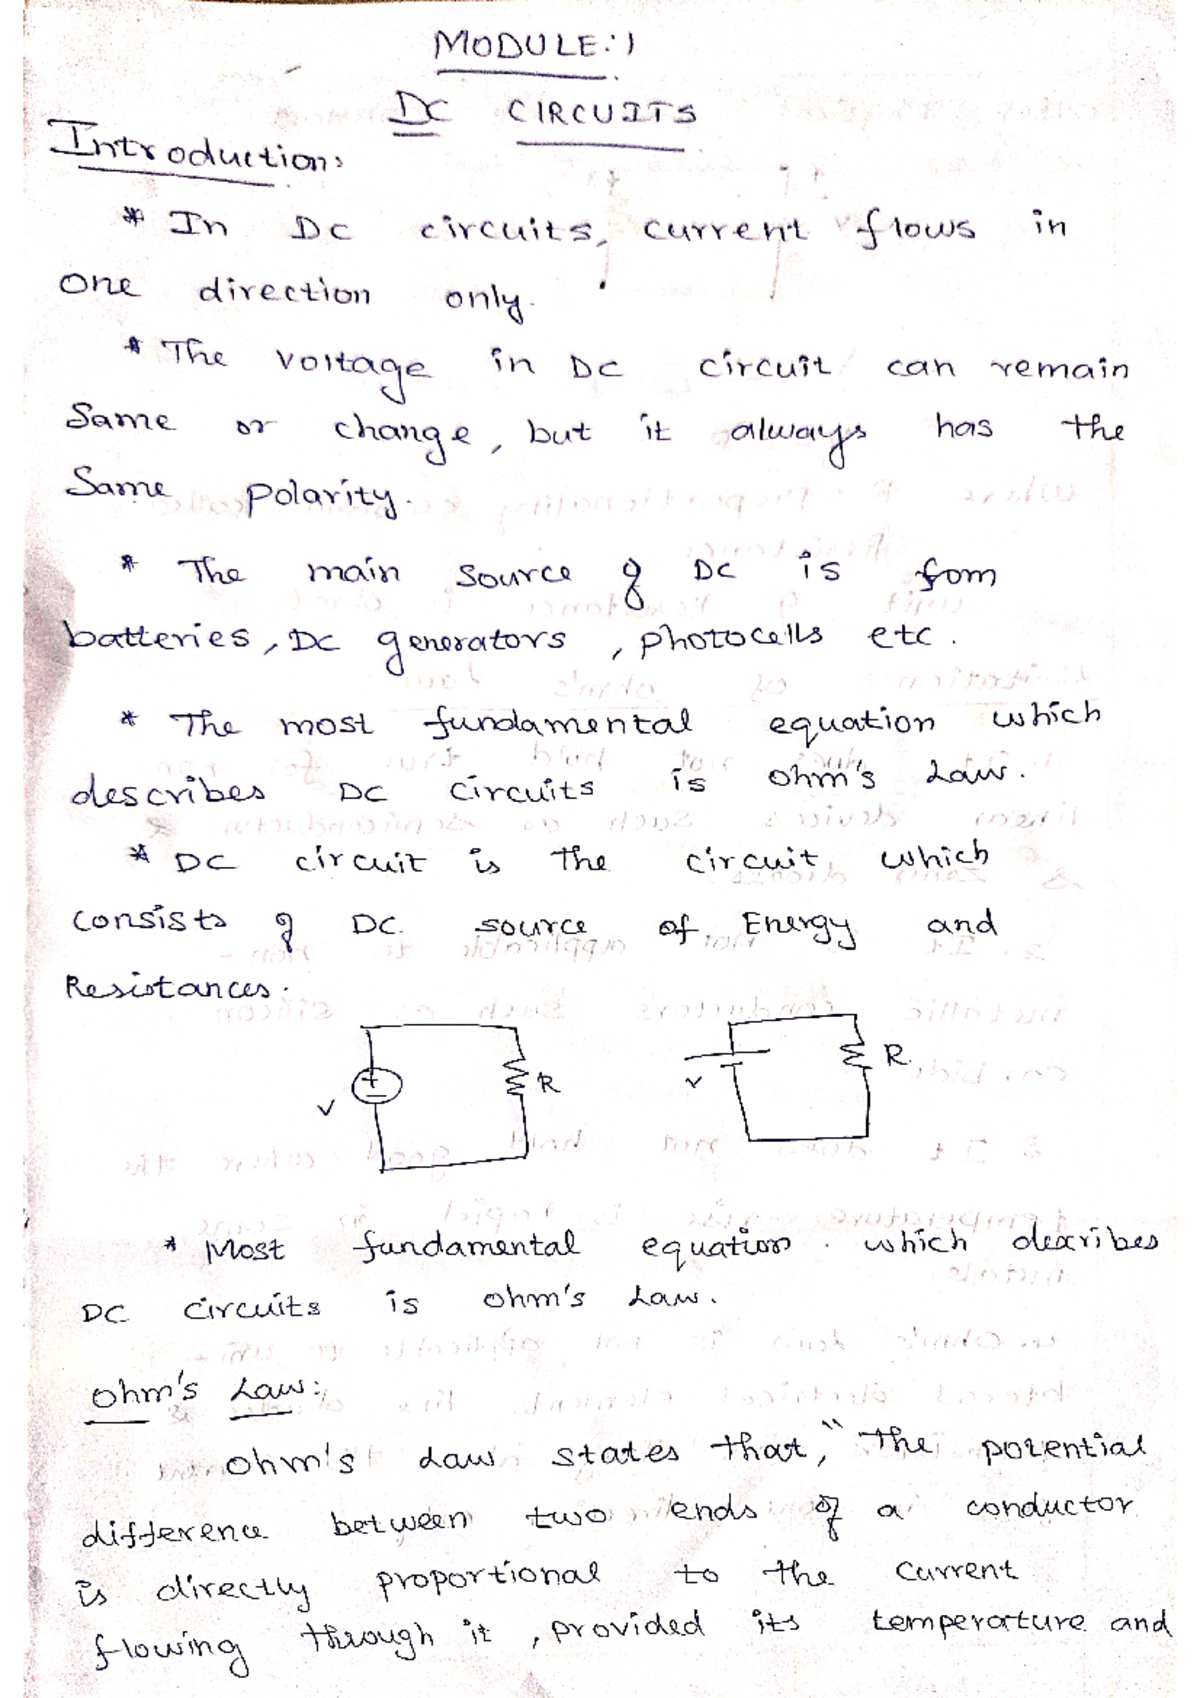 MODULE:1
DC CIRCUITS
Introduction:
* In DC circuits, current flows in
one direction only.
* The voltage in DC circuit can remain
Same or change, but it always has the
Same polarity.
* The main source of DC is fom
batteries, DC generators, photocells etc.
* The most fundamental equation which
describes DC circuits is ohm's Law.
* DC circuit is the circuit which
consists of DC source of Energy and
Resistances.
V + - R
V R
* Most fundamental equation which describes
DC circuits is ohm's Law.
Ohm's Law:
Ohm's Law states that, "The potential
difference between two ends of a conductor
is directly proportional to the current
flowing through it, provided its temperature and